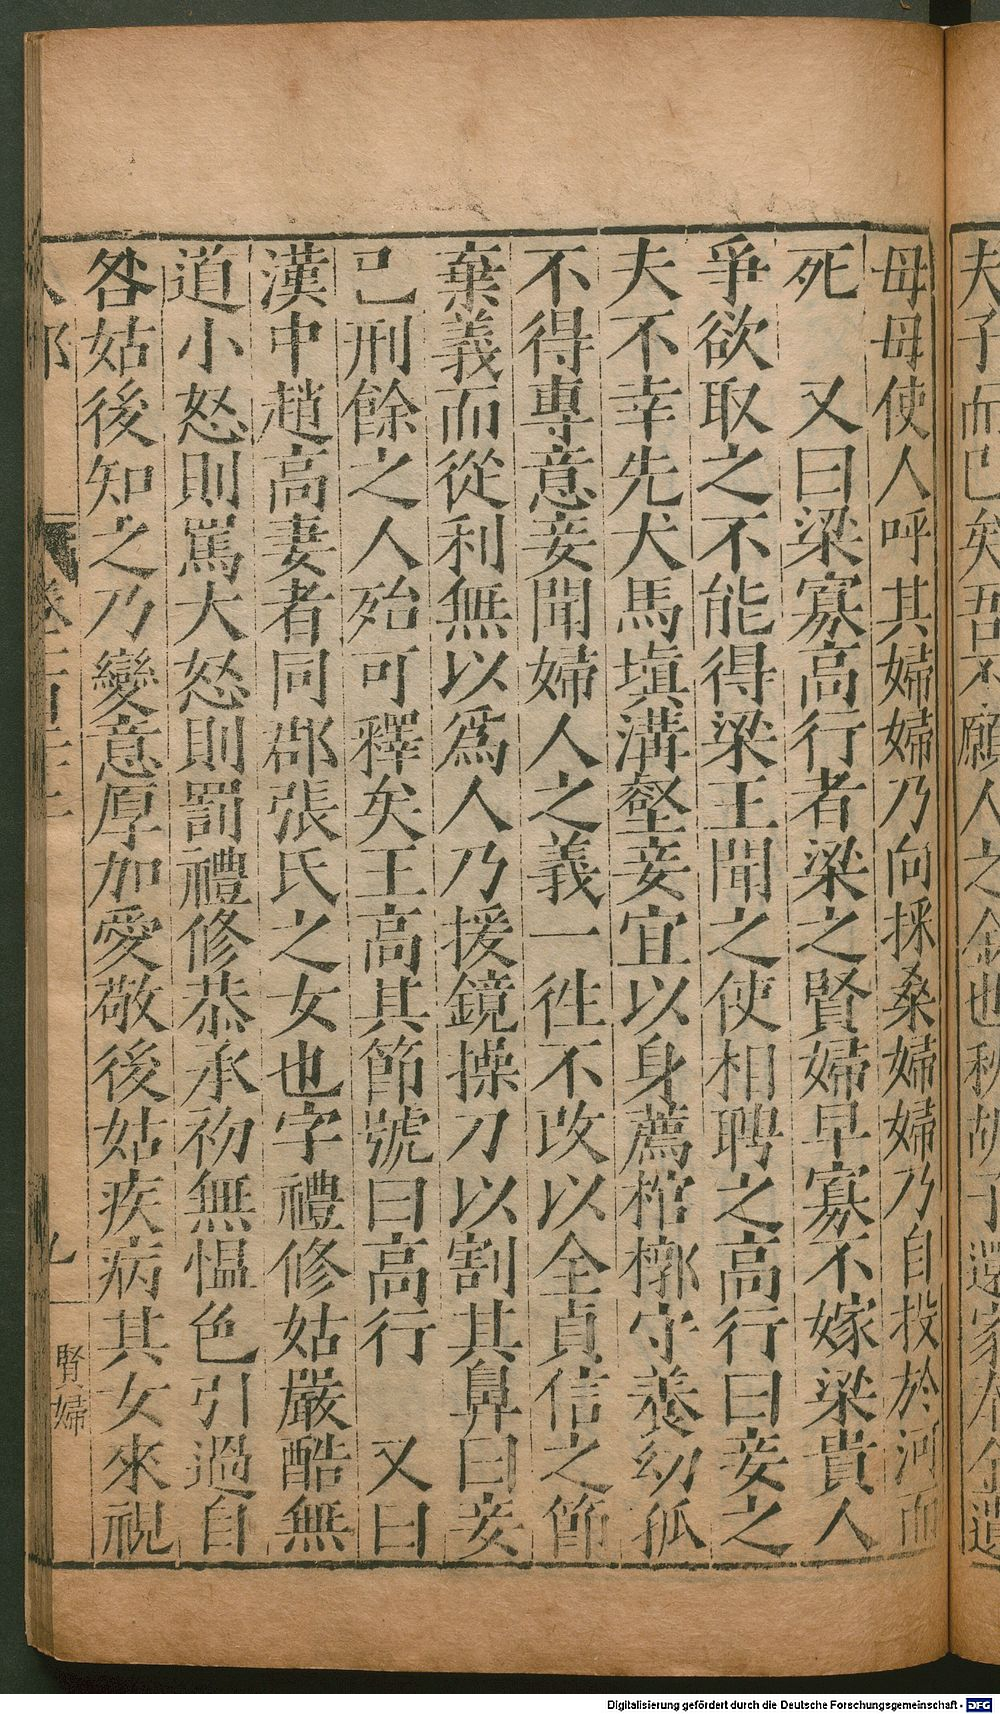 夫子而已矣吾不願人之金也秋胡子還家奉金遺
母母使人呼其婦婦乃向採桑婦婦乃自投於河而
死　又曰梁寡高行者梁之賢婦早寡不嫁梁貴人
爭欲取之不能得梁王聞之使相聘之高行曰妾之
夫不幸先犬馬塡溝壑妾宜以身薦棺槨守養幼孤
不得專意妾聞婦人之義一徃不改以全貞信之節
棄義而從利無以爲人乃援鏡操刀以割其鼻曰妾
已刑餘之人殆可釋矣王高其節號曰高行　又曰
漢中趙高妻者同郡張氏之女也字禮修姑嚴酷無
道小怒則罵大怒則罰禮修恭承初無慍色引過自
咎姑後知之乃變意厚加愛敬後姑疾病其女來視
賢婦
九
Digitalisierung gefördert durch die Deutsche Forschungsgemeinschaft - DFG